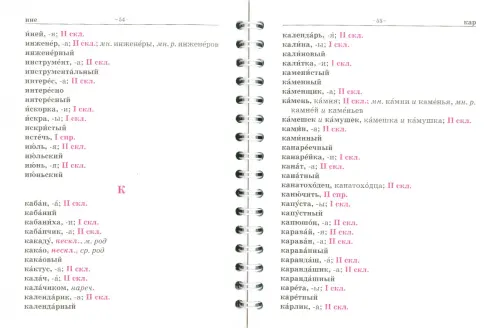 ине
- 54 -
и́ней, -я; II скл.
инжене́р, -а; II скл.; мн. инжене́ры, мн. р. инжене́ров
инжене́рный
инструме́нт, -а; II скл.
инструмента́льный
интере́с, -а; II скл.
интере́сно
интере́сный
и́скорка, -и; I скл.
и́скра, -ы; I скл.
искри́стый
исте́чь, I спр.
ию́ль, -я; II скл.
ию́льский
ию́нь, -я; II скл.
ию́ньский
К
каба́н, -а́; II скл.
каба́ний
кабани́ха, -и; I скл.
каба́нчик, -а; II скл.
какаду́, нескл., м. род
кака́о, нескл., ср. род
кака́овый
ка́ктус, -а; II скл.
кала́ч, -а́; II скл.
калачико́м, нареч.
календа́рик, -а; II скл.
календа́рный
- 55 -
кар
календа́рь, -я́; II скл.
кали́на, -ы; I скл.
кали́новый
кали́тка, -и; I скл.
камени́стый
ка́менный
ка́менщик, -а; II скл.
ка́мень, ка́мня; II скл.; мн. ка́мни и каме́нья, мн. р.
камне́й и каме́ньев
ка́мешек и ка́мушек, ка́мешка и ка́мушка; II скл.
ками́н, -а; II скл.
ками́нный
канаре́ечный
канаре́йка, -и; I скл.
кана́т, -а; II скл.
кана́тный
канатохо́дец, канатохо́дца; II скл.
каню́чить, II спр.
капу́ста, -ы; I скл.
капу́стный
капюшо́н, -а; II скл.
карава́й, -я; II скл.
карава́н, -а; II скл.
карава́нный
каранда́ш, -а́; II скл.
каранда́шик, -а; II скл.
каранда́шный
каре́та, -ы; I скл.
каре́тный
ка́рлик, -а; II скл.